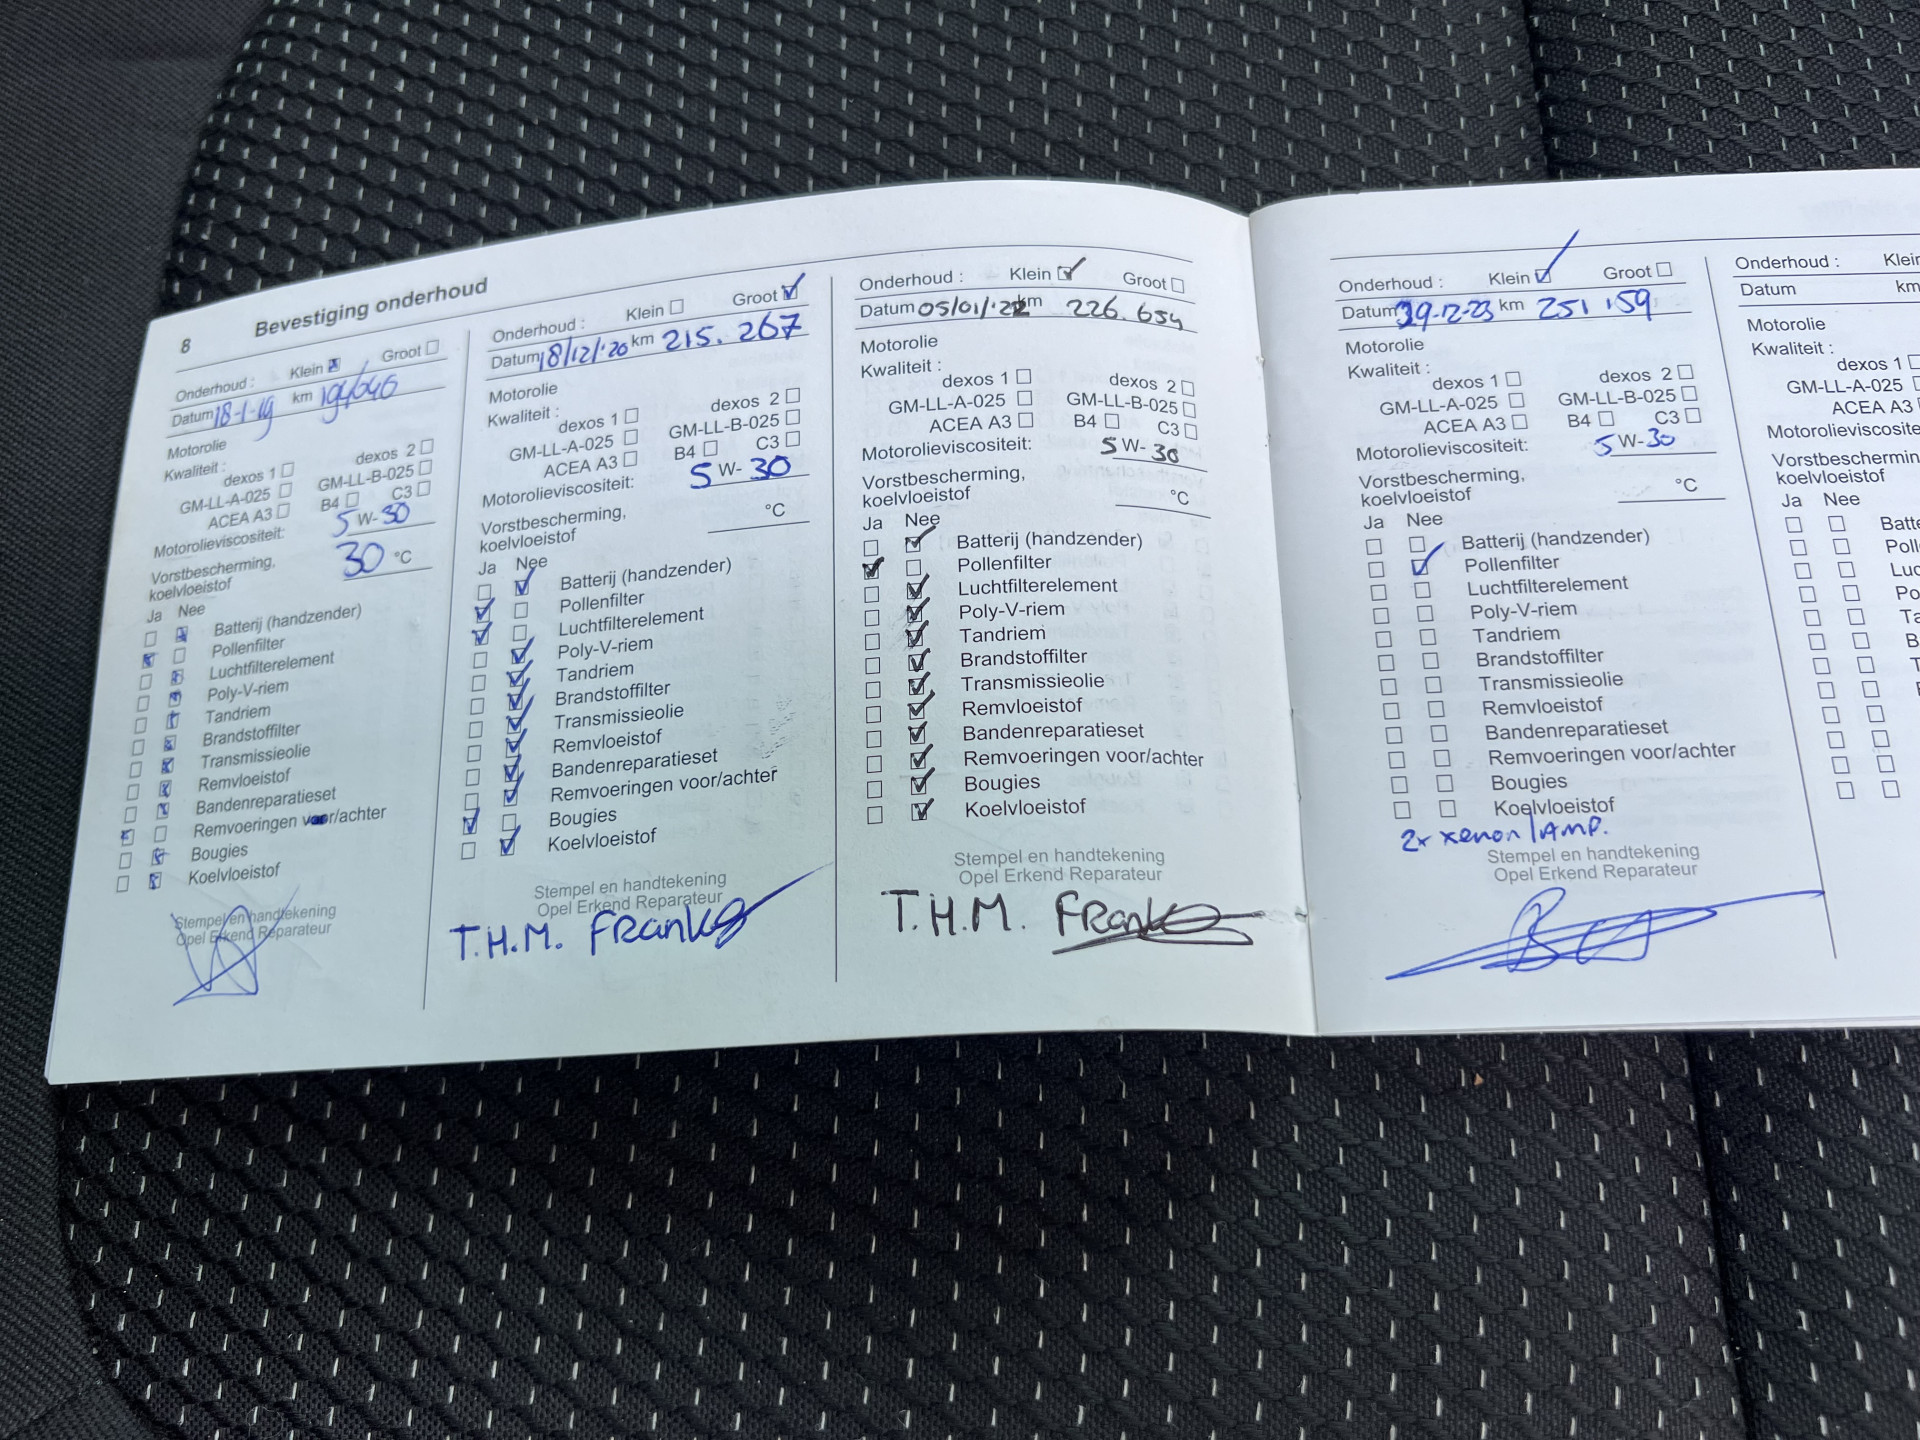 8 Bevestiging onderhoud
Onderhoud : Klein Groot
Datum 18-1-19 km
Motorolie
Kwaliteit :
dexos 1 dexos 2
GM-LL-A-025 GM-LL-B-025
ACEA A3 B4 C3
Motorolieviscositeit: 5 W-30
Vorstbescherming,
koelvloeistof 30 °C
Ja Nee
Batterij (handzender)
Pollenfilter
Luchtfilterelement
Poly-V-riem
Tandriem
Brandstoffilter
Transmissieolie
Remvloeistof
Bandenreparatieset
Remvoeringen voor/achter
Bougies
Koelvloeistof
Stempel en handtekening
Opel Erkend Reparateur
Onderhoud : Klein Groot
Datum 18/12/'20 km 215.267
Motorolie
Kwaliteit :
dexos 1 dexos 2
GM-LL-A-025 GM-LL-B-025
ACEA A3 B4 C3
Motorolieviscositeit: 5 W-30
Vorstbescherming,
koelvloeistof °C
Ja Nee
Batterij (handzender)
Pollenfilter
Luchtfilterelement
Poly-V-riem
Tandriem
Brandstoffilter
Transmissieolie
Remvloeistof
Bandenreparatieset
Remvoeringen voor/achter
Bougies
Koelvloeistof
Stempel en handtekening
Opel Erkend Reparateur
T.H.M. Franke
Onderhoud : Klein Groot
Datum 05/01/'22 km 226.654
Motorolie
Kwaliteit :
dexos 1 dexos 2
GM-LL-A-025 GM-LL-B-025
ACEA A3 B4 C3
Motorolieviscositeit: 5 W-30
Vorstbescherming,
koelvloeistof °C
Ja Nee
Batterij (handzender)
Pollenfilter
Luchtfilterelement
Poly-V-riem
Tandriem
Brandstoffilter
Transmissieolie
Remvloeistof
Bandenreparatieset
Remvoeringen voor/achter
Bougies
Koelvloeistof
Stempel en handtekening
Opel Erkend Reparateur
T.H.M. Franke
Onderhoud : Klein Groot
Datum 29-12-23 km 251.159
Motorolie
Kwaliteit :
dexos 1 dexos 2
GM-LL-A-025 GM-LL-B-025
ACEA A3 B4 C3
Motorolieviscositeit: 5 W-30
Vorstbescherming,
koelvloeistof °C
Ja Nee
Batterij (handzender)
Pollenfilter
Luchtfilterelement
Poly-V-riem
Tandriem
Brandstoffilter
Transmissieolie
Remvloeistof
Bandenreparatieset
Remvoeringen voor/achter
Bougies
Koelvloeistof
2x xenon lamp.
Stempel en handtekening
Opel Erkend Reparateur
Onderhoud : Klein
Datum km
Motorolie
Kwaliteit :
dexos 1
GM-LL-A-025
ACEA A3
Motorolieviscosite
Vorstbeschermin
koelvloeistof
Ja Nee
Batte
Poll
Luc
Po
Ta
B
T